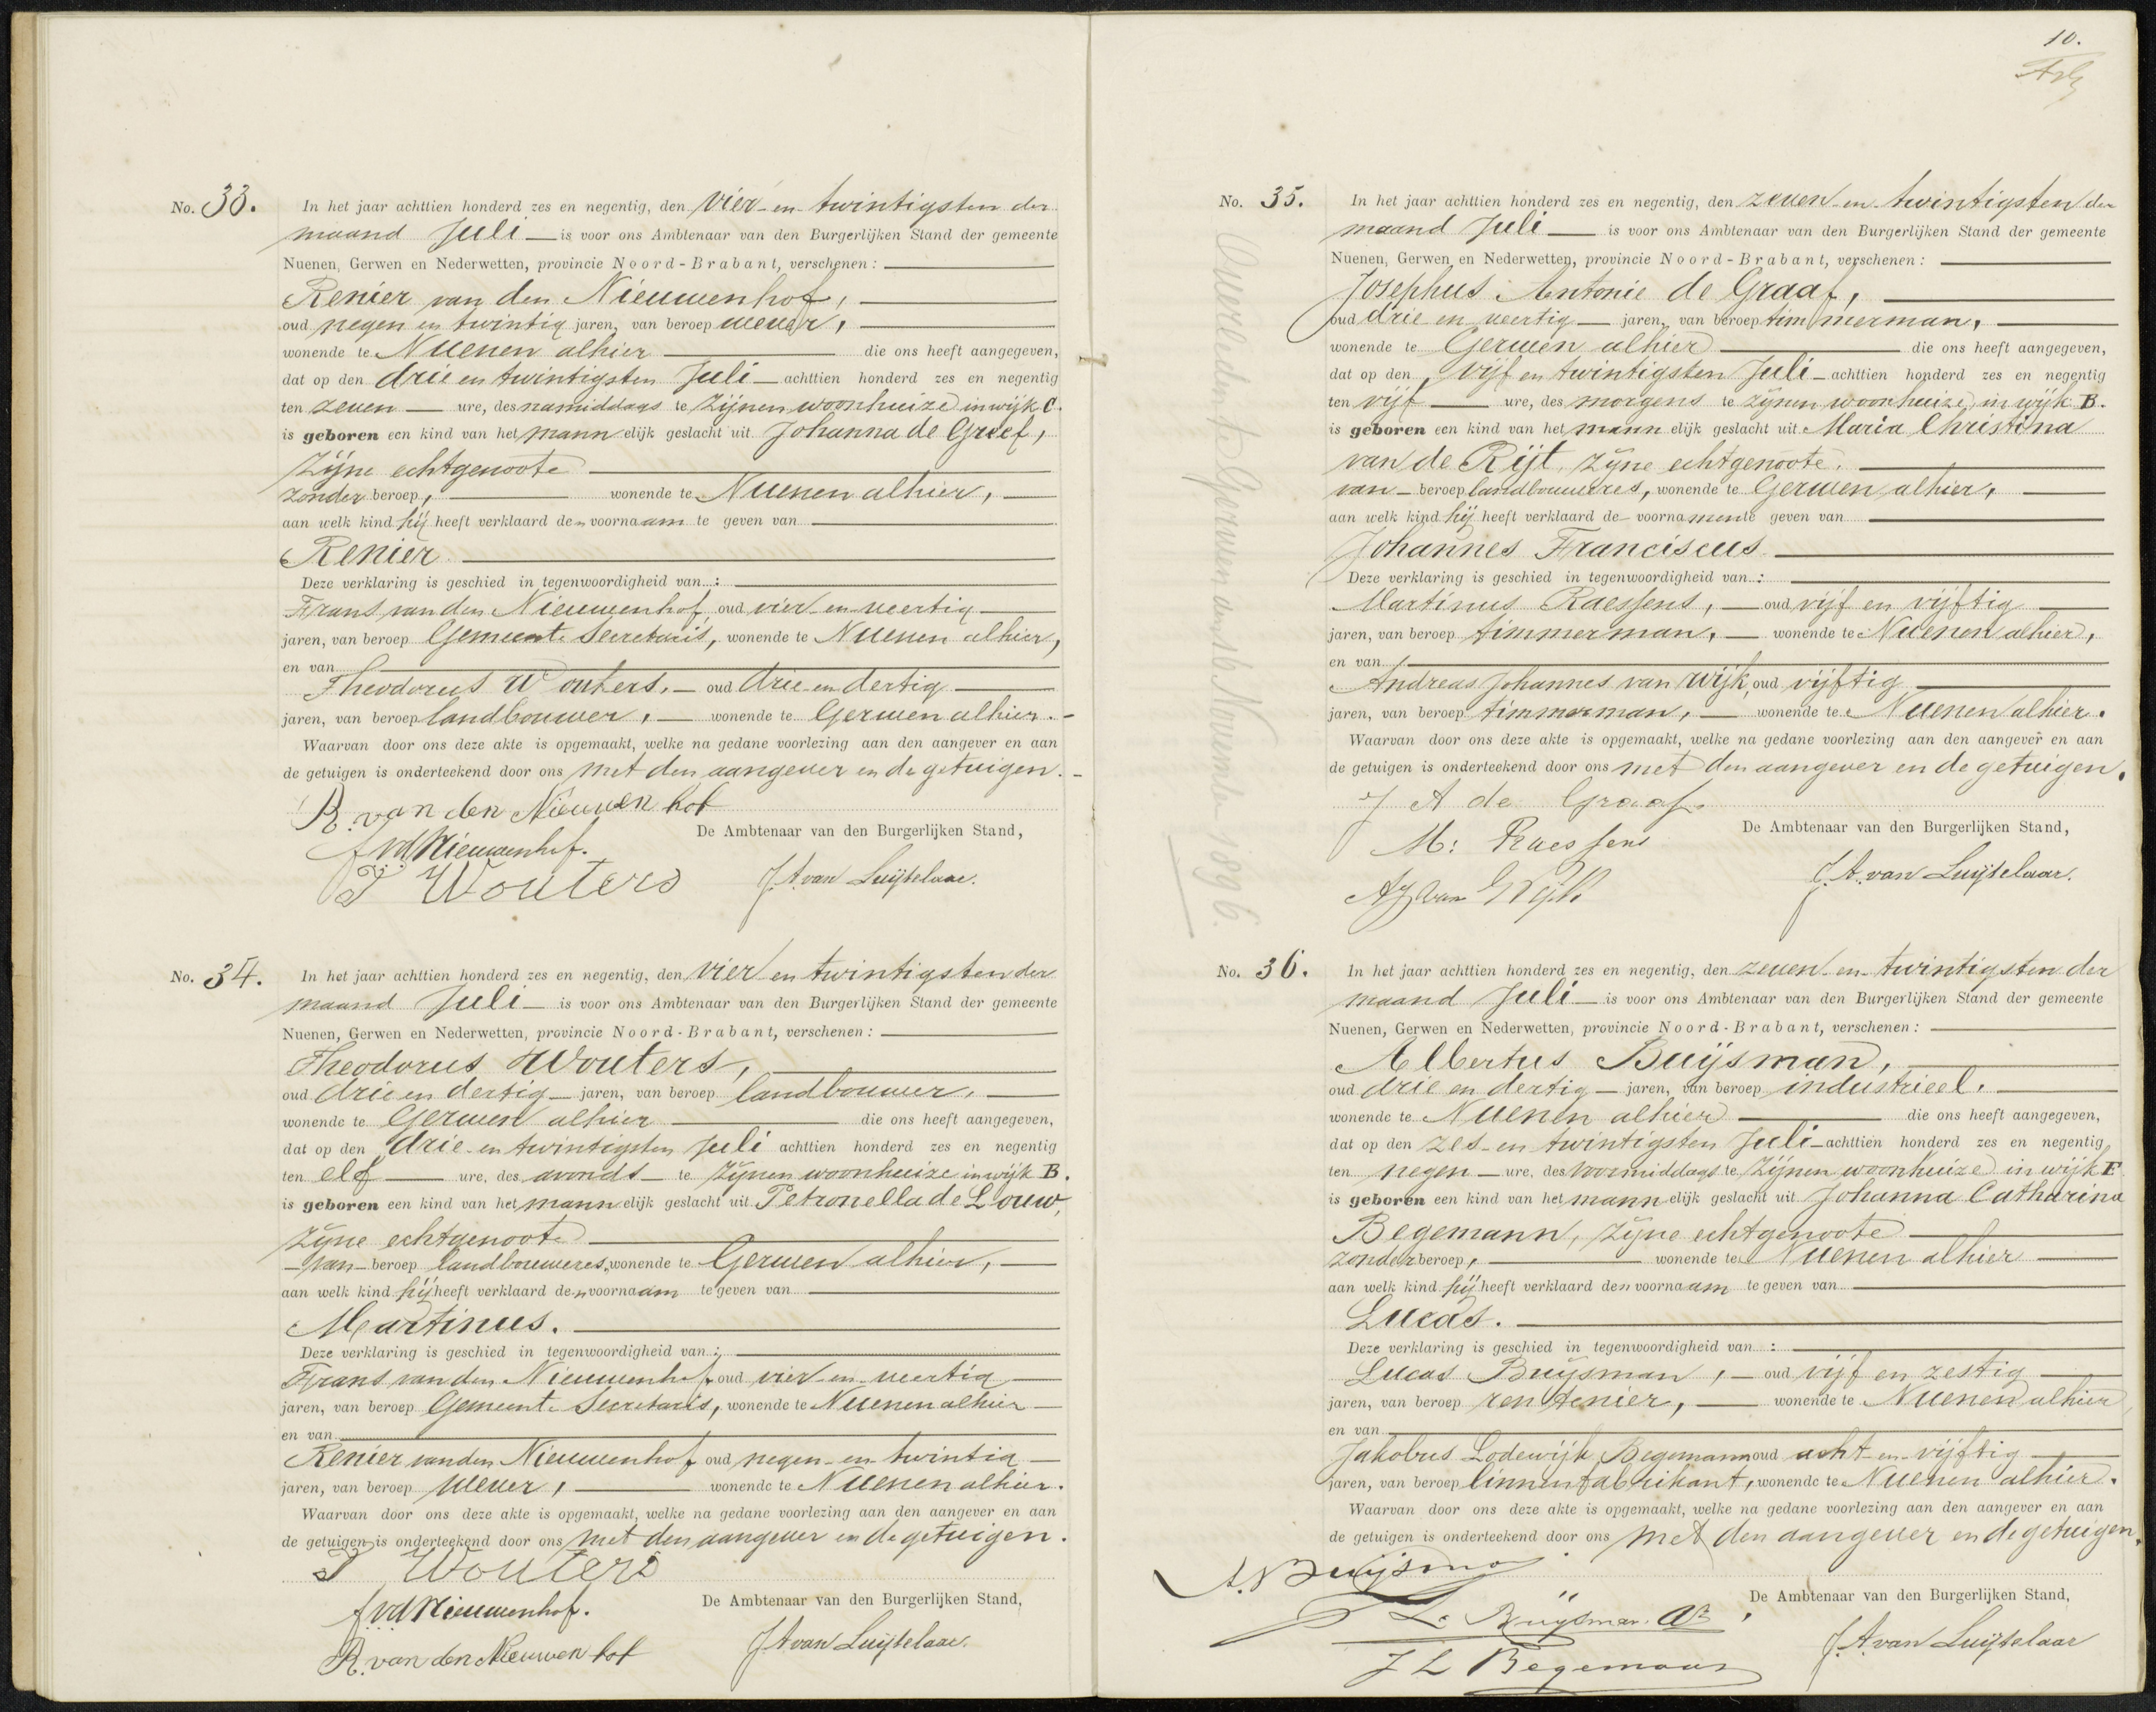 No. 33. In het jaar achttien honderd zes en negentig, den vier en twintigsten der
maand Juli is voor ons Ambtenaar van den Burgerlijken Stand der gemeente
Nuenen, Gerwen en Nederwetten, provincie Noord-Brabant, verschenen:
Renier van den Nieuwenhof,
oud negen en twintig jaren, van beroep wever,
wonende te Nuenen alhier die ons heeft aangegeven,
dat op den drie en twintigsten Juli achttien honderd zes en negentig
ten zeven ure, des namiddags te zijnen woonhuize in wijk C.
is geboren een kind van het mannelijk geslacht uit Johanna de Greef,
zijne echtgenoote
zonder beroep, wonende te Nuenen alhier,
aan welk kind hij heeft verklaard den voornaam te geven van
Renier
Deze verklaring is geschied in tegenwoordigheid van:
Frans van den Nieuwenhof, oud vier en veertig
jaren, van beroep Gemeente Secretaris, wonende te Nuenen alhier,
en van
Theodorus Wouters, oud drie en dertig
jaren, van beroep landbouwer, wonende te Gerwen alhier.
Waarvan door ons deze akte is opgemaakt, welke na gedane voorlezing aan den aangever en aan
de getuigen is onderteekend door ons met den aangever en de getuigen.
R. van den Nieuwenhof
De Ambtenaar van den Burgerlijken Stand,
F vd Nieuwenhof.
T Wouters J. A. van Luijtelaar.
No. 34. In het jaar achttien honderd zes en negentig, den vier en twintigsten der
maand Juli is voor ons Ambtenaar van den Burgerlijken Stand der gemeente
Nuenen, Gerwen en Nederwetten, provincie Noord-Brabant, verschenen:
Theodorus Wouters,
oud drie en dertig jaren, van beroep landbouwer,
wonende te Gerwen alhier die ons heeft aangegeven,
dat op den drie en twintigsten Juli achttien honderd zes en negentig
ten elf ure, des avonds te zijnen woonhuize in wijk B.
is geboren een kind van het mannelijk geslacht uit Petronella de Louw,
zijne echtgenoote
van beroep landbouweres, wonende te Gerwen alhier,
aan welk kind hij heeft verklaard den voornaam te geven van
Martinus.
Deze verklaring is geschied in tegenwoordigheid van:
Frans van den Nieuwenhof, oud vier en veertig
jaren, van beroep Gemeente Secretaris, wonende te Nuenen alhier
en van
Renier van den Nieuwenhof oud negen en twintig
jaren, van beroep wever, wonende te Nuenen alhier.
Waarvan door ons deze akte is opgemaakt, welke na gedane voorlezing aan den aangever en aan
de getuigen is onderteekend door ons met den aangever en de getuigen.
T Wouters
De Ambtenaar van den Burgerlijken Stand,
F. vd Nieuwenhof.
R. van den Nieuwenhof J. A. van Luijtelaar.
10.
No. 35. In het jaar achttien honderd zes en negentig, den zeven en twintigsten der
maand Juli is voor ons Ambtenaar van den Burgerlijken Stand der gemeente
Nuenen, Gerwen en Nederwetten, provincie Noord-Brabant, verschenen:
Josephus Antonie de Graaf,
oud drie en veertig jaren, van beroep timmerman,
wonende te Gerwen alhier die ons heeft aangegeven,
dat op den vijf en twintigsten Juli achttien honderd zes en negentig
ten vijf ure, des morgens te zijnen woonhuize, in wijk B.
is geboren een kind van het mannelijk geslacht uit Maria Christina
van de Rijt, zijne echtgenoote,
van beroep landbouweres, wonende te Gerwen alhier,
aan welk kind hij heeft verklaard de voornamen te geven van
Johannes Franciscus
Deze verklaring is geschied in tegenwoordigheid van:
Martinus Raessens, oud vijf en vijftig
jaren, van beroep timmerman, wonende te Nuenen alhier,
en van
Andreas Johannes van Wijk, oud vijftig
jaren, van beroep timmerman, wonende te Nuenen alhier.
Waarvan door ons deze akte is opgemaakt, welke na gedane voorlezing aan den aangever en aan
de getuigen is onderteekend door ons met den aangever en de getuigen.
J A de Graaf
De Ambtenaar van den Burgerlijken Stand,
M: Raessens
A J van Wijk J. A. van Luijtelaar.
Overleden te Gerwen den 16 November 1896.
No. 36. In het jaar achttien honderd zes en negentig, den zeven en twintigsten der
maand Juli is voor ons Ambtenaar van den Burgerlijken Stand der gemeente
Nuenen, Gerwen en Nederwetten, provincie Noord-Brabant, verschenen:
Albertus Buijsman,
oud drie en dertig jaren, van beroep industrieel,
wonende te Nuenen alhier die ons heeft aangegeven,
dat op den zes en twintigsten Juli achttien honderd zes en negentig
ten negen ure, des voormiddags te zijnen woonhuize in wijk E
is geboren een kind van het mannelijk geslacht uit Johanna Catharina
Begemann, zijne echtgenoote
zonder beroep, wonende te Nuenen alhier
aan welk kind hij heeft verklaard den voornaam te geven van
Lucas.
Deze verklaring is geschied in tegenwoordigheid van:
Lucas Buijsman, oud vijf en zestig
jaren, van beroep rentenier, wonende te Nuenen alhier
en van
Jakobus Lodewijk Begemann oud acht en vijftig
jaren, van beroep linnenfabrikant, wonende te Nuenen alhier.
Waarvan door ons deze akte is opgemaakt, welke na gedane voorlezing aan den aangever en aan
de getuigen is onderteekend door ons met den aangever en de getuigen.
A. Buijsman
De Ambtenaar van den Burgerlijken Stand,
L. Buijsman
J L Begemann J. A. van Luijtelaar